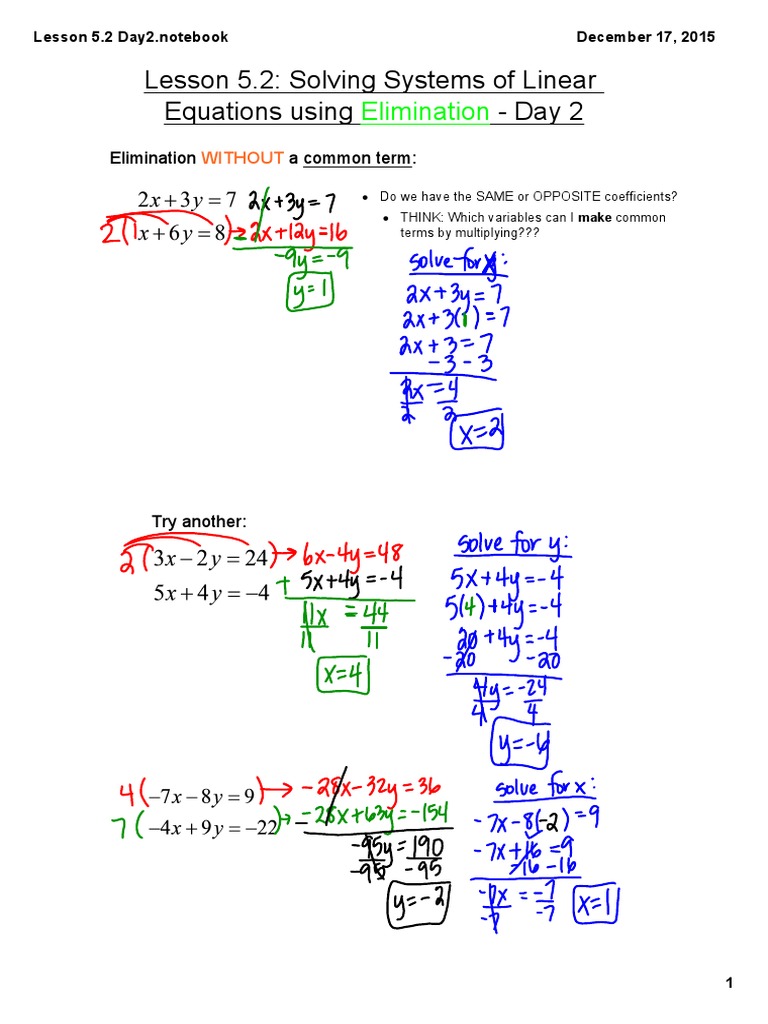 Lesson 5.2 Day2.notebook
December 17, 2015
Lesson 5.2: Solving Systems of Linear
Equations using Elimination - Day 2
Elimination WITHOUT a common term:
2x + 3y = 7
2x+3y=7
2(1x + 6y = 8) → - 2x+12y=16
-9y=-9
y=1
• Do we have the SAME or OPPOSITE coefficients?
• THINK: Which variables can I make common
terms by multiplying???
solve for x:
2x+3y=7
2x+3(1)=7
2x+3=7
-3 -3
2x=4
2 2
x=2
Try another:
2(3x − 2y = 24) → 6x-4y=48
5x + 4y = −4
+ 5x+4y=-4
11x = 44
11 11
x=4
solve for y:
5x+4y=-4
5(4)+4y=-4
20+4y=-4
-20 -20
4y=-24
4 4
y=-6
4(−7x − 8y = 9) → -28x-32y=36
7(−4x + 9y = −22) → - -28x+63y=-154
-95y=190
-95 -95
y=-2
solve for x:
-7x-8(-2)=9
-7x+16=9
-16 -16
-7x=-7
-7 -7
x=1
1